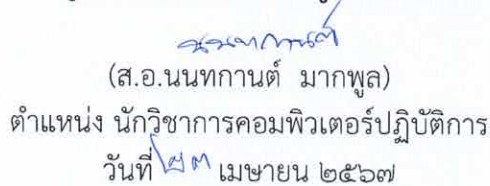 นนทกานต์
(ส.อ.นนทกานต์ มากพูล)
ตำแหน่ง นักวิชาการคอมพิวเตอร์ปฏิบัติการ
วันที่ ๒๓ เมษายน ๒๕๖๗